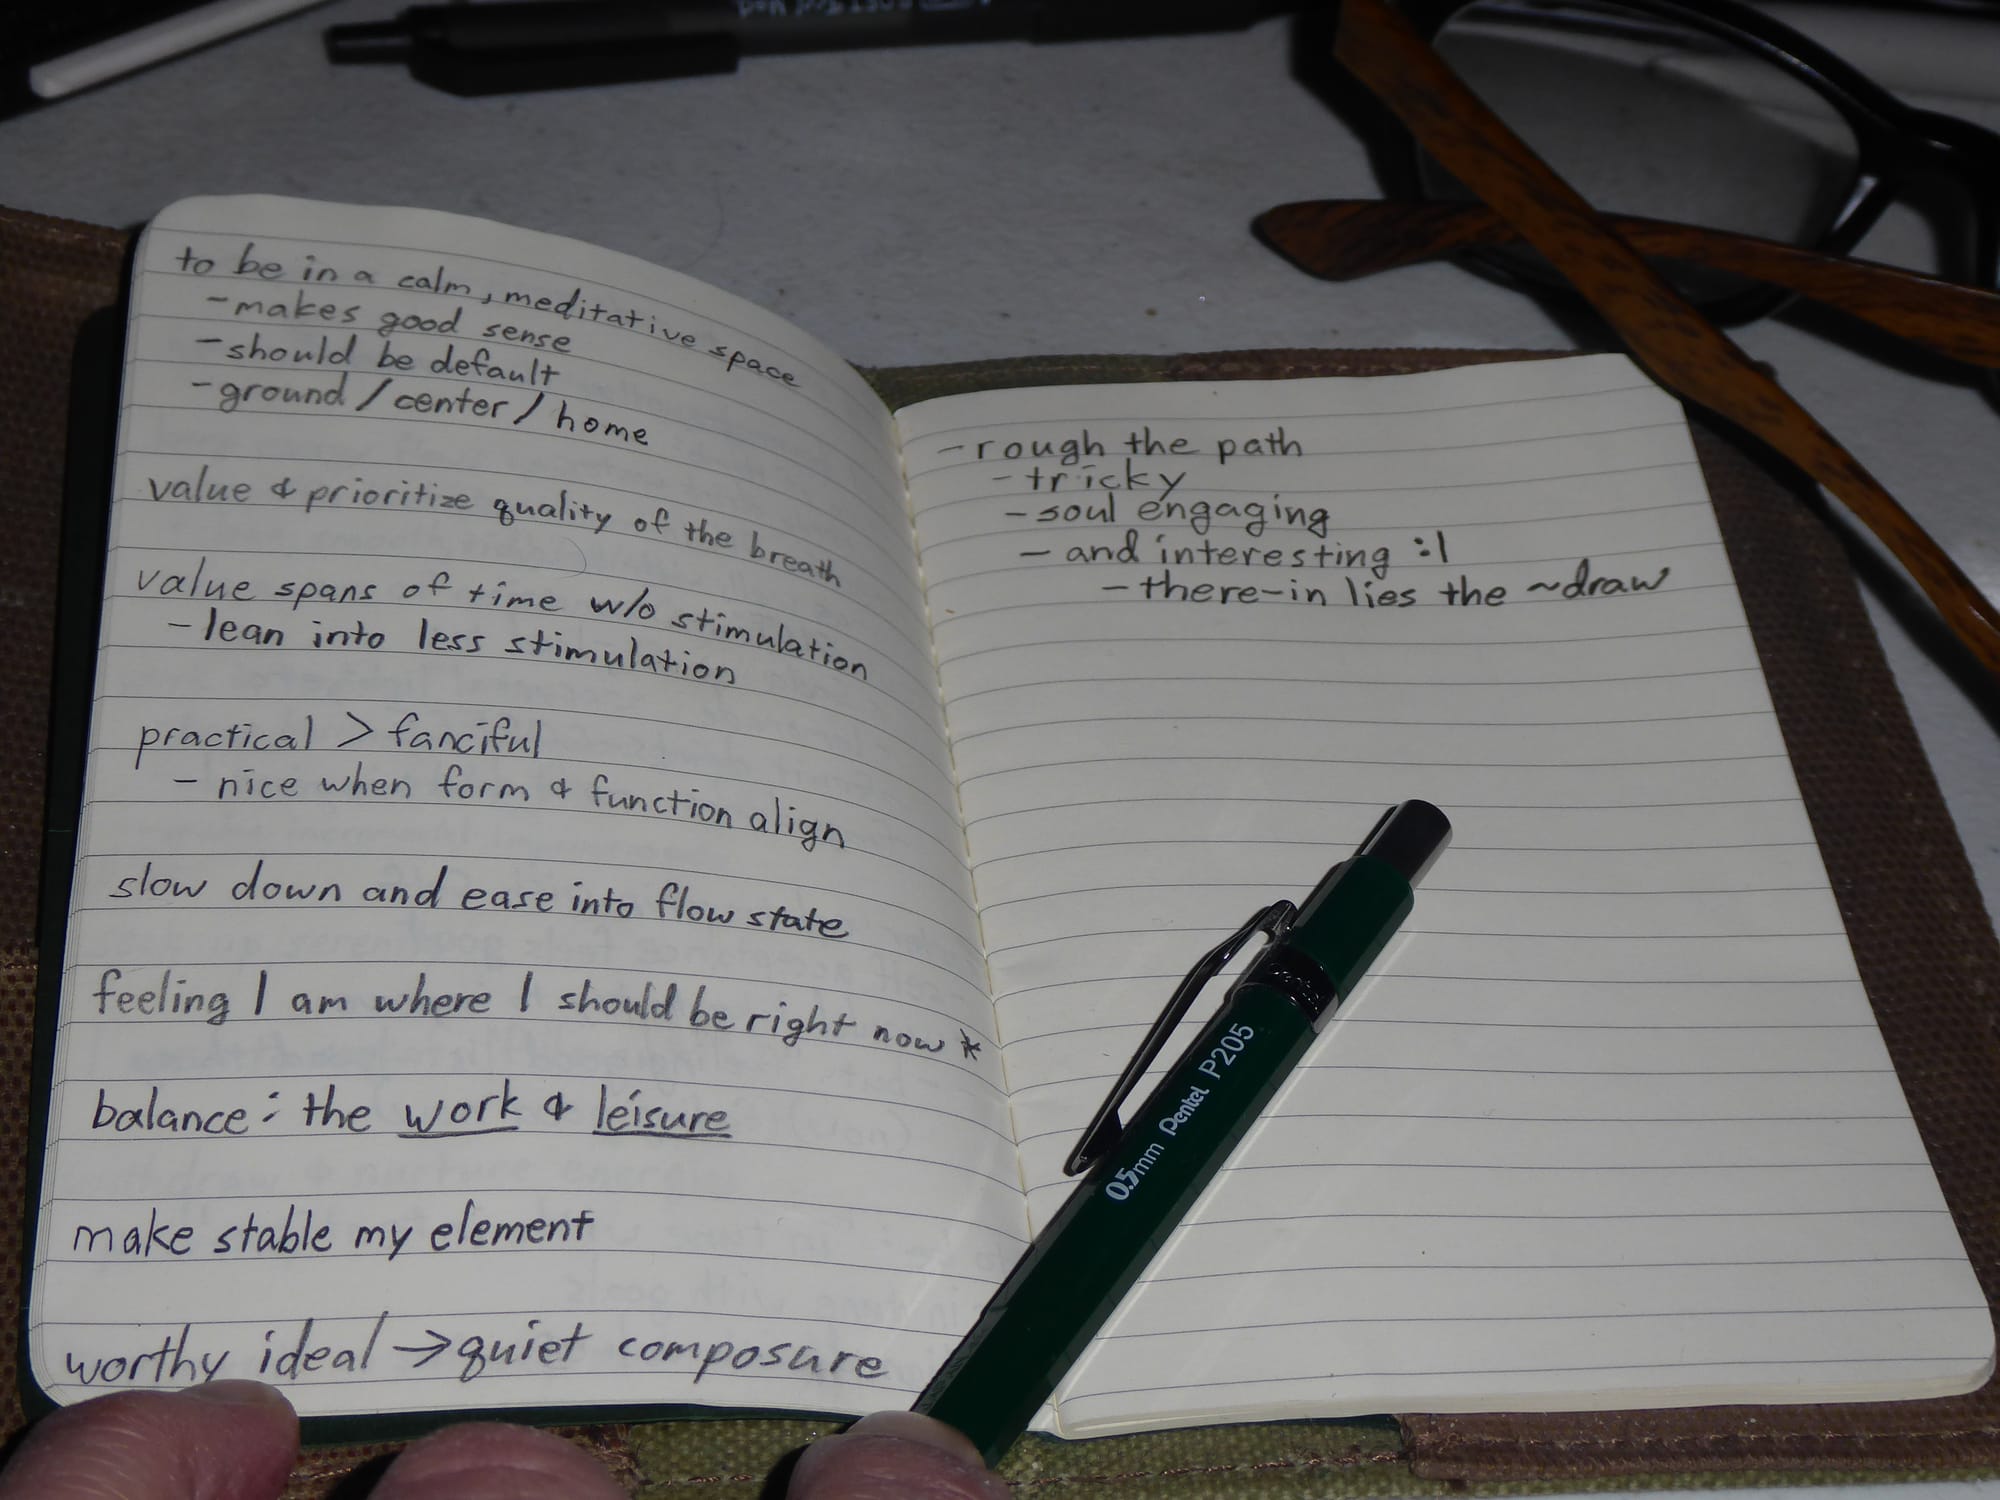 to be in a calm, meditative space
- makes good sense
- should be default
- ground / center / home
value & prioritize quality of the breath
value spans of time w/o stimulation
- lean into less stimulation
practical > fanciful
- nice when form & function align
slow down and ease into flow state
feeling I am where I should be right now *
balance: the work & leisure
make stable my element
worthy ideal → quiet composure
- rough the path
- tricky
- soul engaging
- and interesting :|
- there-in lies the ~draw
0.5mm Pentel P205